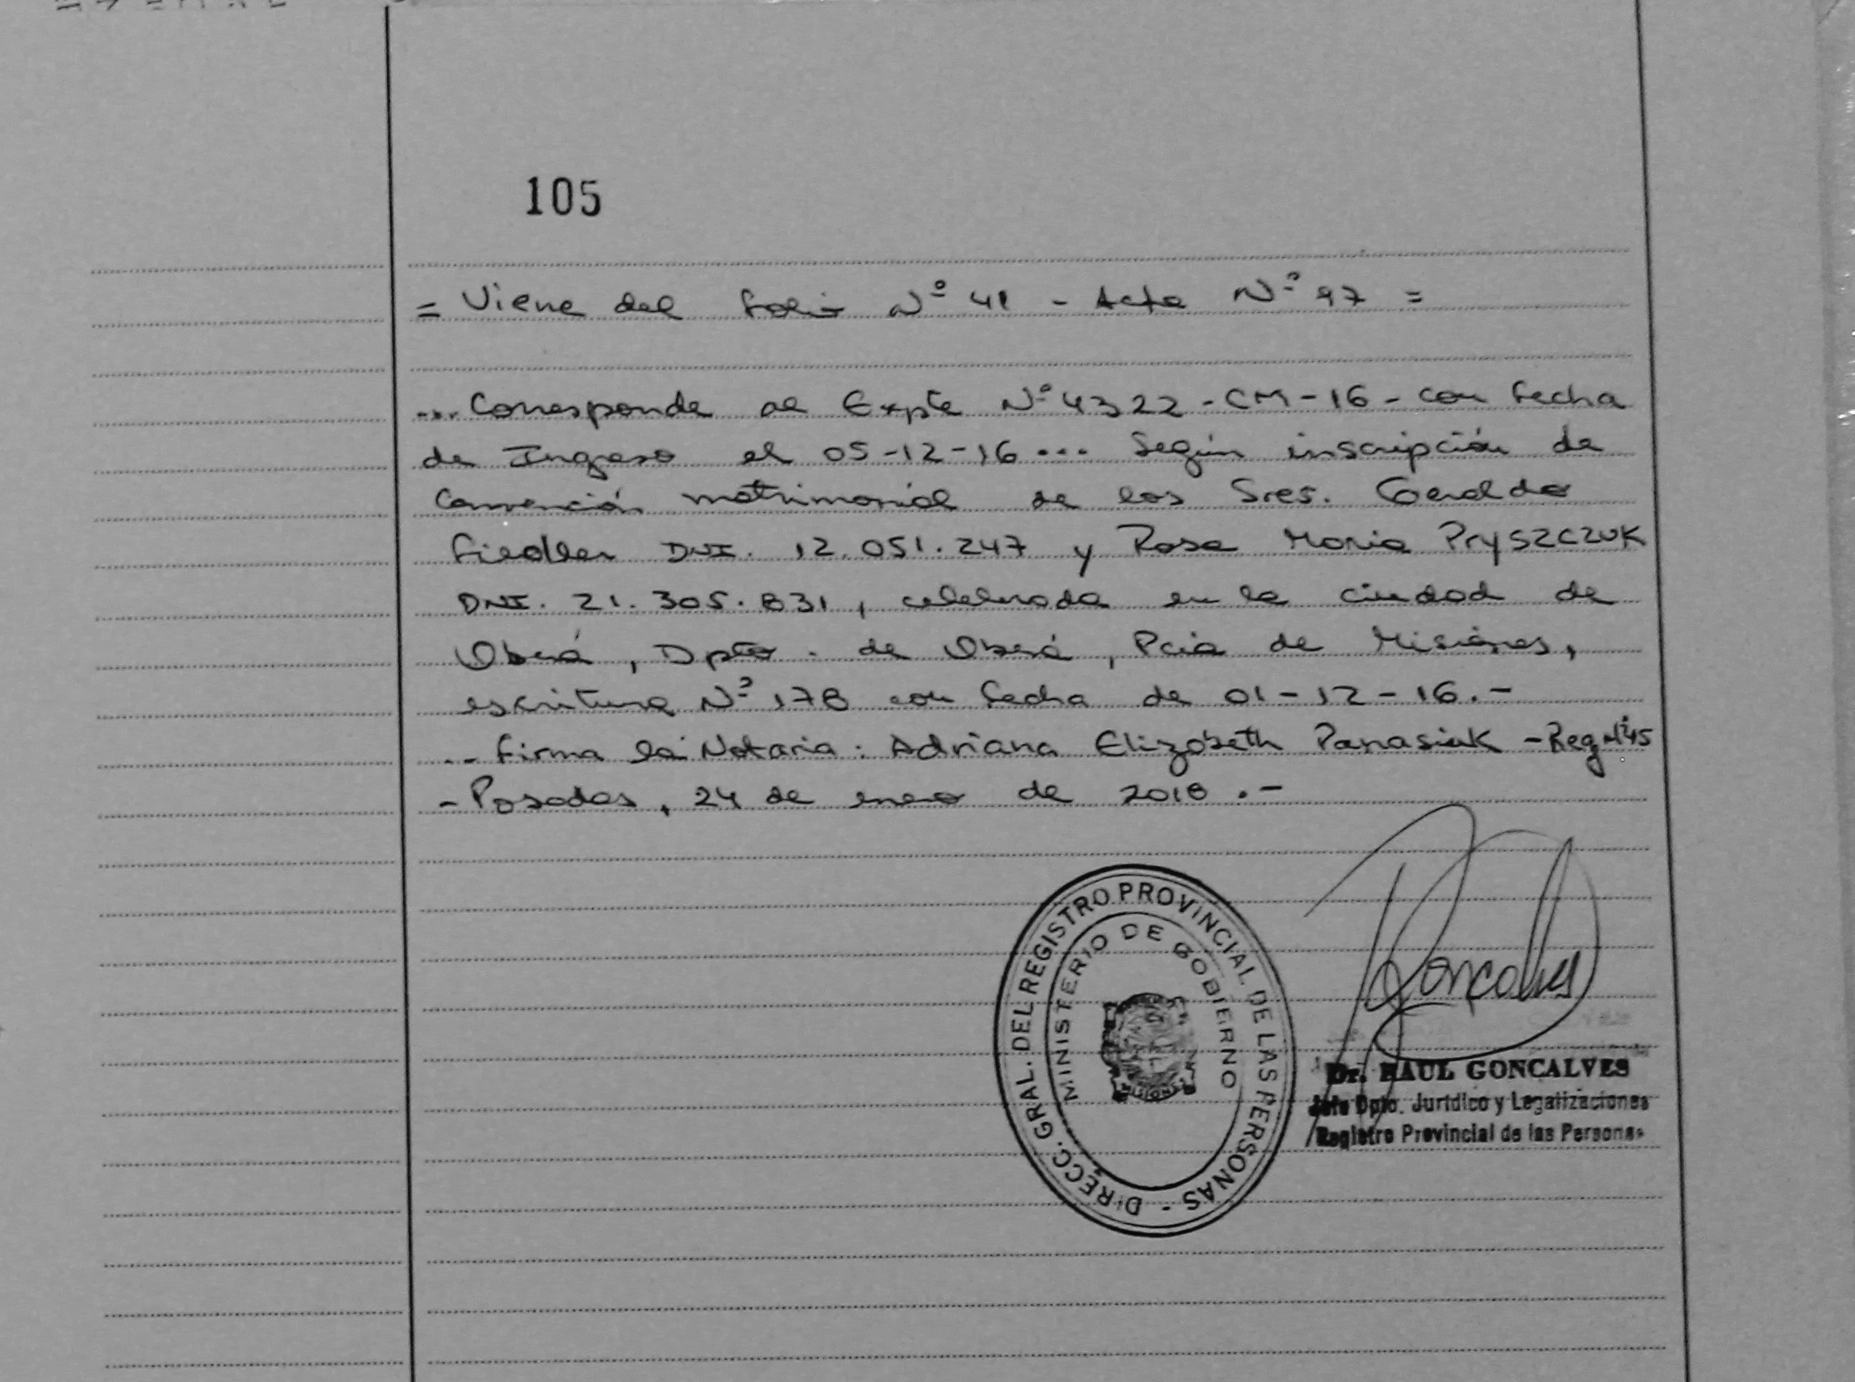 105
= Viene del folio Nº 41 - Acta Nº 97 =
... Corresponde al Expte Nº 4322-CM-16- con fecha
de Ingreso el 05-12-16... Según inscripción de
Convención matrimonial de los Sres. Geraldo
Fiedler DNI. 12.051.247 y Rosa Maria Pryszczuk
DNI. 21.305.831, celebrada en la ciudad de
Oberá, Dpto. de Oberá, Pcia de Misiones,
escritura Nº 178 con fecha de 01-12-16.-
... firma la Notaria: Adriana Elizabeth Panasiuk - Reg Nº 45
- Posadas, 24 de enero de 2018.-
DIRECC. GRAL. DEL REGISTRO PROVINCIAL DE LAS PERSONAS -
MINISTERIO DE GOBIERNO
MISIONES
Goncalves
Dr. RAUL GONCALVES
Jefe Dpto. Jurídico y Legalizaciones
Registro Provincial de las Personas